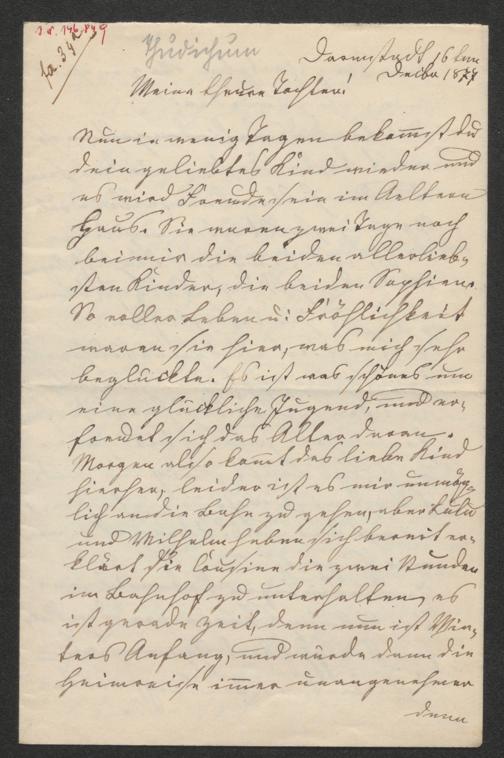 I. N. 146.849
Thudichum
Darmstadt 16ten
Decbr 1877
Meine theure Tochter!
Nun in wenig Tagen bekommst du
dein geliebtes Kind wieder und
es wird Freude sein im Aeltern
Haus. Sie waren zwei Tage noch
bei mir die beiden allerlieb-
sten Kinder, die beiden Sophien.
So voller Leben u: Fröhlichkeit
waren sie hier, was mich sehr
beglückte. Es ist was schönes um
eine glückliche Jugend, und er-
freuet sich das Alter daran.
Morgen also kommt das liebe Kind
hierher, leider ist es mir unmög-
lich an die Bahn zu gehen, aber Lulu
und Wilhelm haben sich bereit er-
klärt die Cousine die zwei Stunden
im Bahnhof zu unterhalten, es
ist gerade Zeit, denn nun ist Win-
ters Anfang, und würde dann die
Heimreise immer unangenehmer
denn